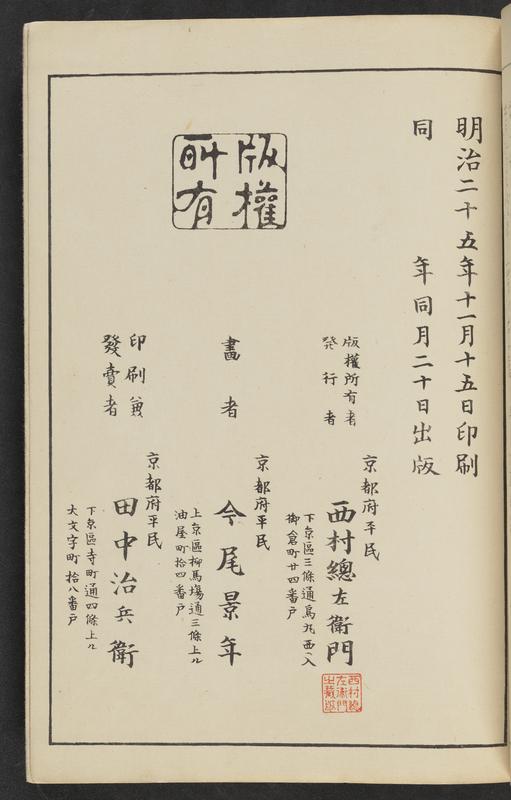 明治二十五年十一月十五日印刷
同 年同月二十日出版
版權所有
版權所有者
発行者
京都府平民
西村總左衛門
下京區三條通烏丸西入
御倉町廿四番戸
西村總
左衛門
出藏部
畫者
京都府平民
今尾景年
上京區柳馬塲通三條上ル
油屋町拾四番戸
印刷兼
發賣者
京都府平民
田中治兵衛
下京區寺町通四條上ル
大文字町拾八番戸